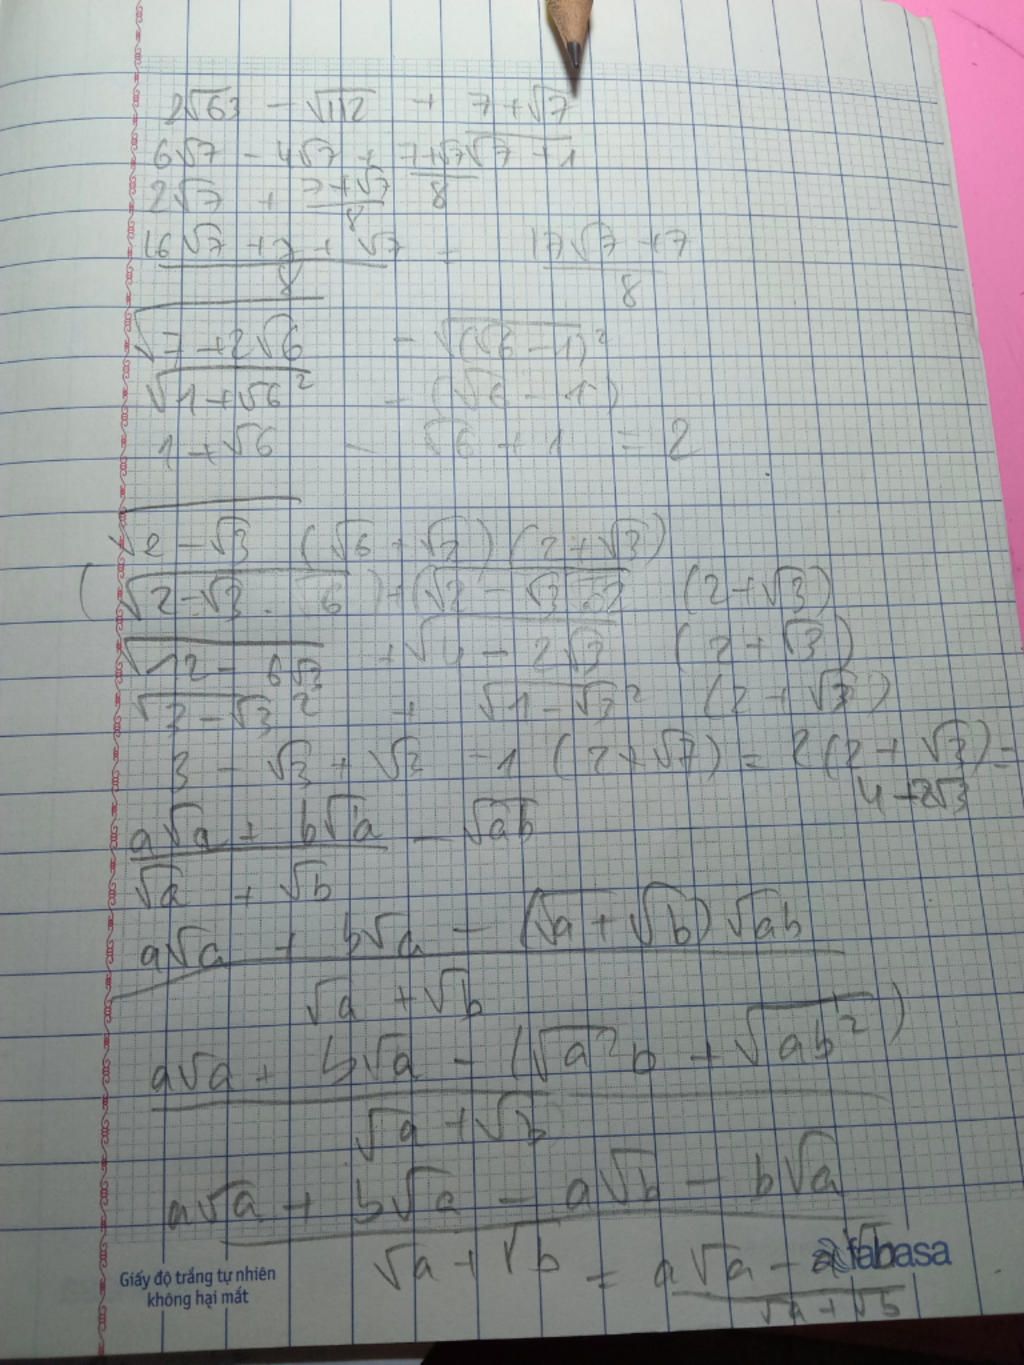 2√63 - √112 + 7+√7
6√7 - 4√7 + 7+√7 √7 + 1
8
2√7 + 7+√7
8
16√7 + 7 + √7 - 17√7 + 7
8 8
√7+2√6 - √(√6 - 1)²
√1+√6² - (√6 - 1)
1+√6 - √6 + 1 = 2
√2 - √3 (√6 + √2) (2+√3)
(√2-√3 . √6) + (√2 - √3 √2 (2+√3)
√12 - 6√3 + √4 - 2√3 (2 + √3)
√3-√3² + √1-√3² (2 + √3)
3 - √3 + √3 - 1 (2+√7) = 2(2 + √3) =
4+2√3
a√a + b√a - √ab
√a + √b
a√a + b√a - (√a + √b) √ab
√a + √b
a√a + b√a - (√a²b + √ab²)
√a + √b
a√a + b√a - a√b - b√a
√a + √b = a√a - a√b
√a + √b
fabasa
Giấy độ trắng tự nhiên
không hại mắt